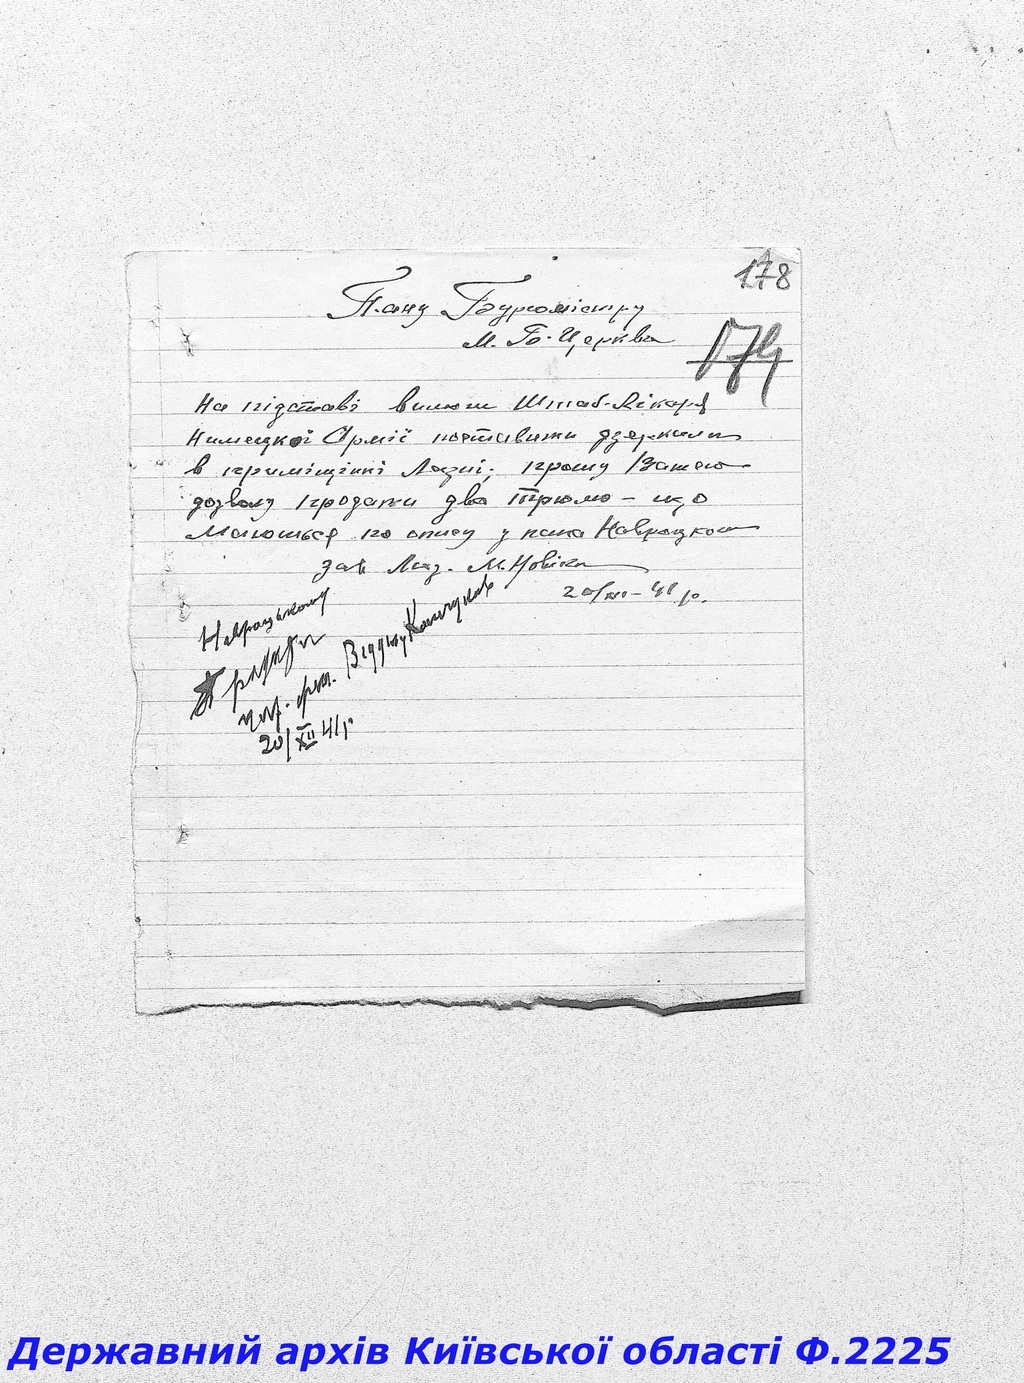 178
Пану Бургомістру
м. Б-Церква
174
На підставі вимоги Штаб-Лікаря
Нимецкої Армії поставити дзеркала
в приміщінні Лазні, прошу Вашого
дозволу продати два Трюмо - що
Маються по опису у пана Навроцкого
зав Лаз. М. Новіка
20/XII-41 р.
Навроцькому
20/XII 41 р
Державний архів Київської області Ф.2225